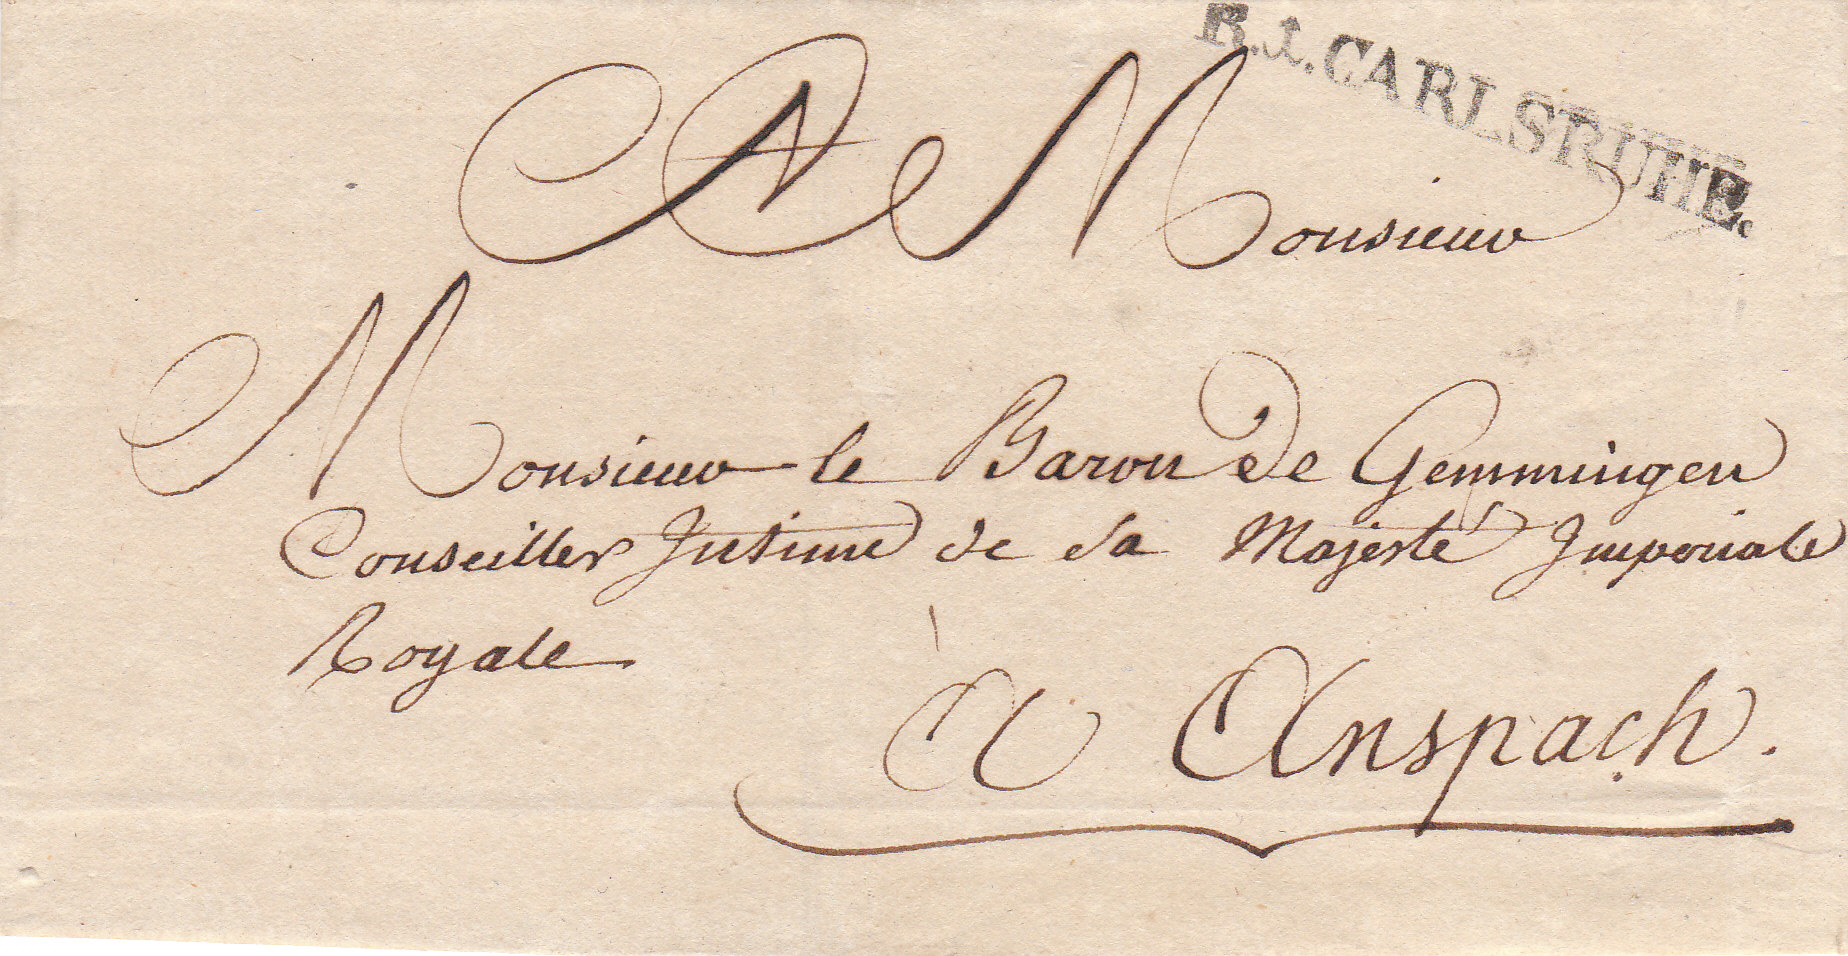 R.1.CARLSRUHE.
A Monsieur
Monsieur le Baron de Gemmingen
Conseiller Intime de sa Majesté Imperiale
Royale
à Anspach.